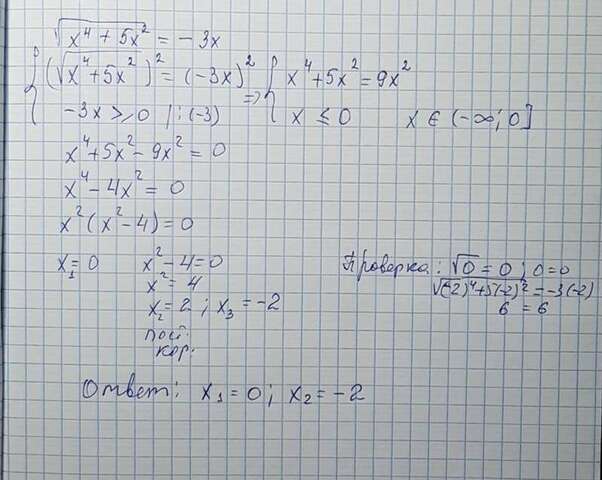 √(x⁴ + 5x²) = - 3x
{ (√(x⁴ + 5x²))² = (-3x)² => { x⁴ + 5x² = 9x²
-3x ≥ 0 | : (-3) x ≤ 0 x ∈ (-∞; 0]
x⁴ + 5x² - 9x² = 0
x⁴ - 4x² = 0
x² (x² - 4) = 0
x₁ = 0 x² - 4 = 0
x² = 4
x₂ = 2 ; x₃ = -2
пост.
кор.
Проверка: √0 = 0 ; 0 = 0
√((-2)⁴ + 5(-2)²) = -3(-2)
6 = 6
Ответ: x₁ = 0 ; x₂ = -2